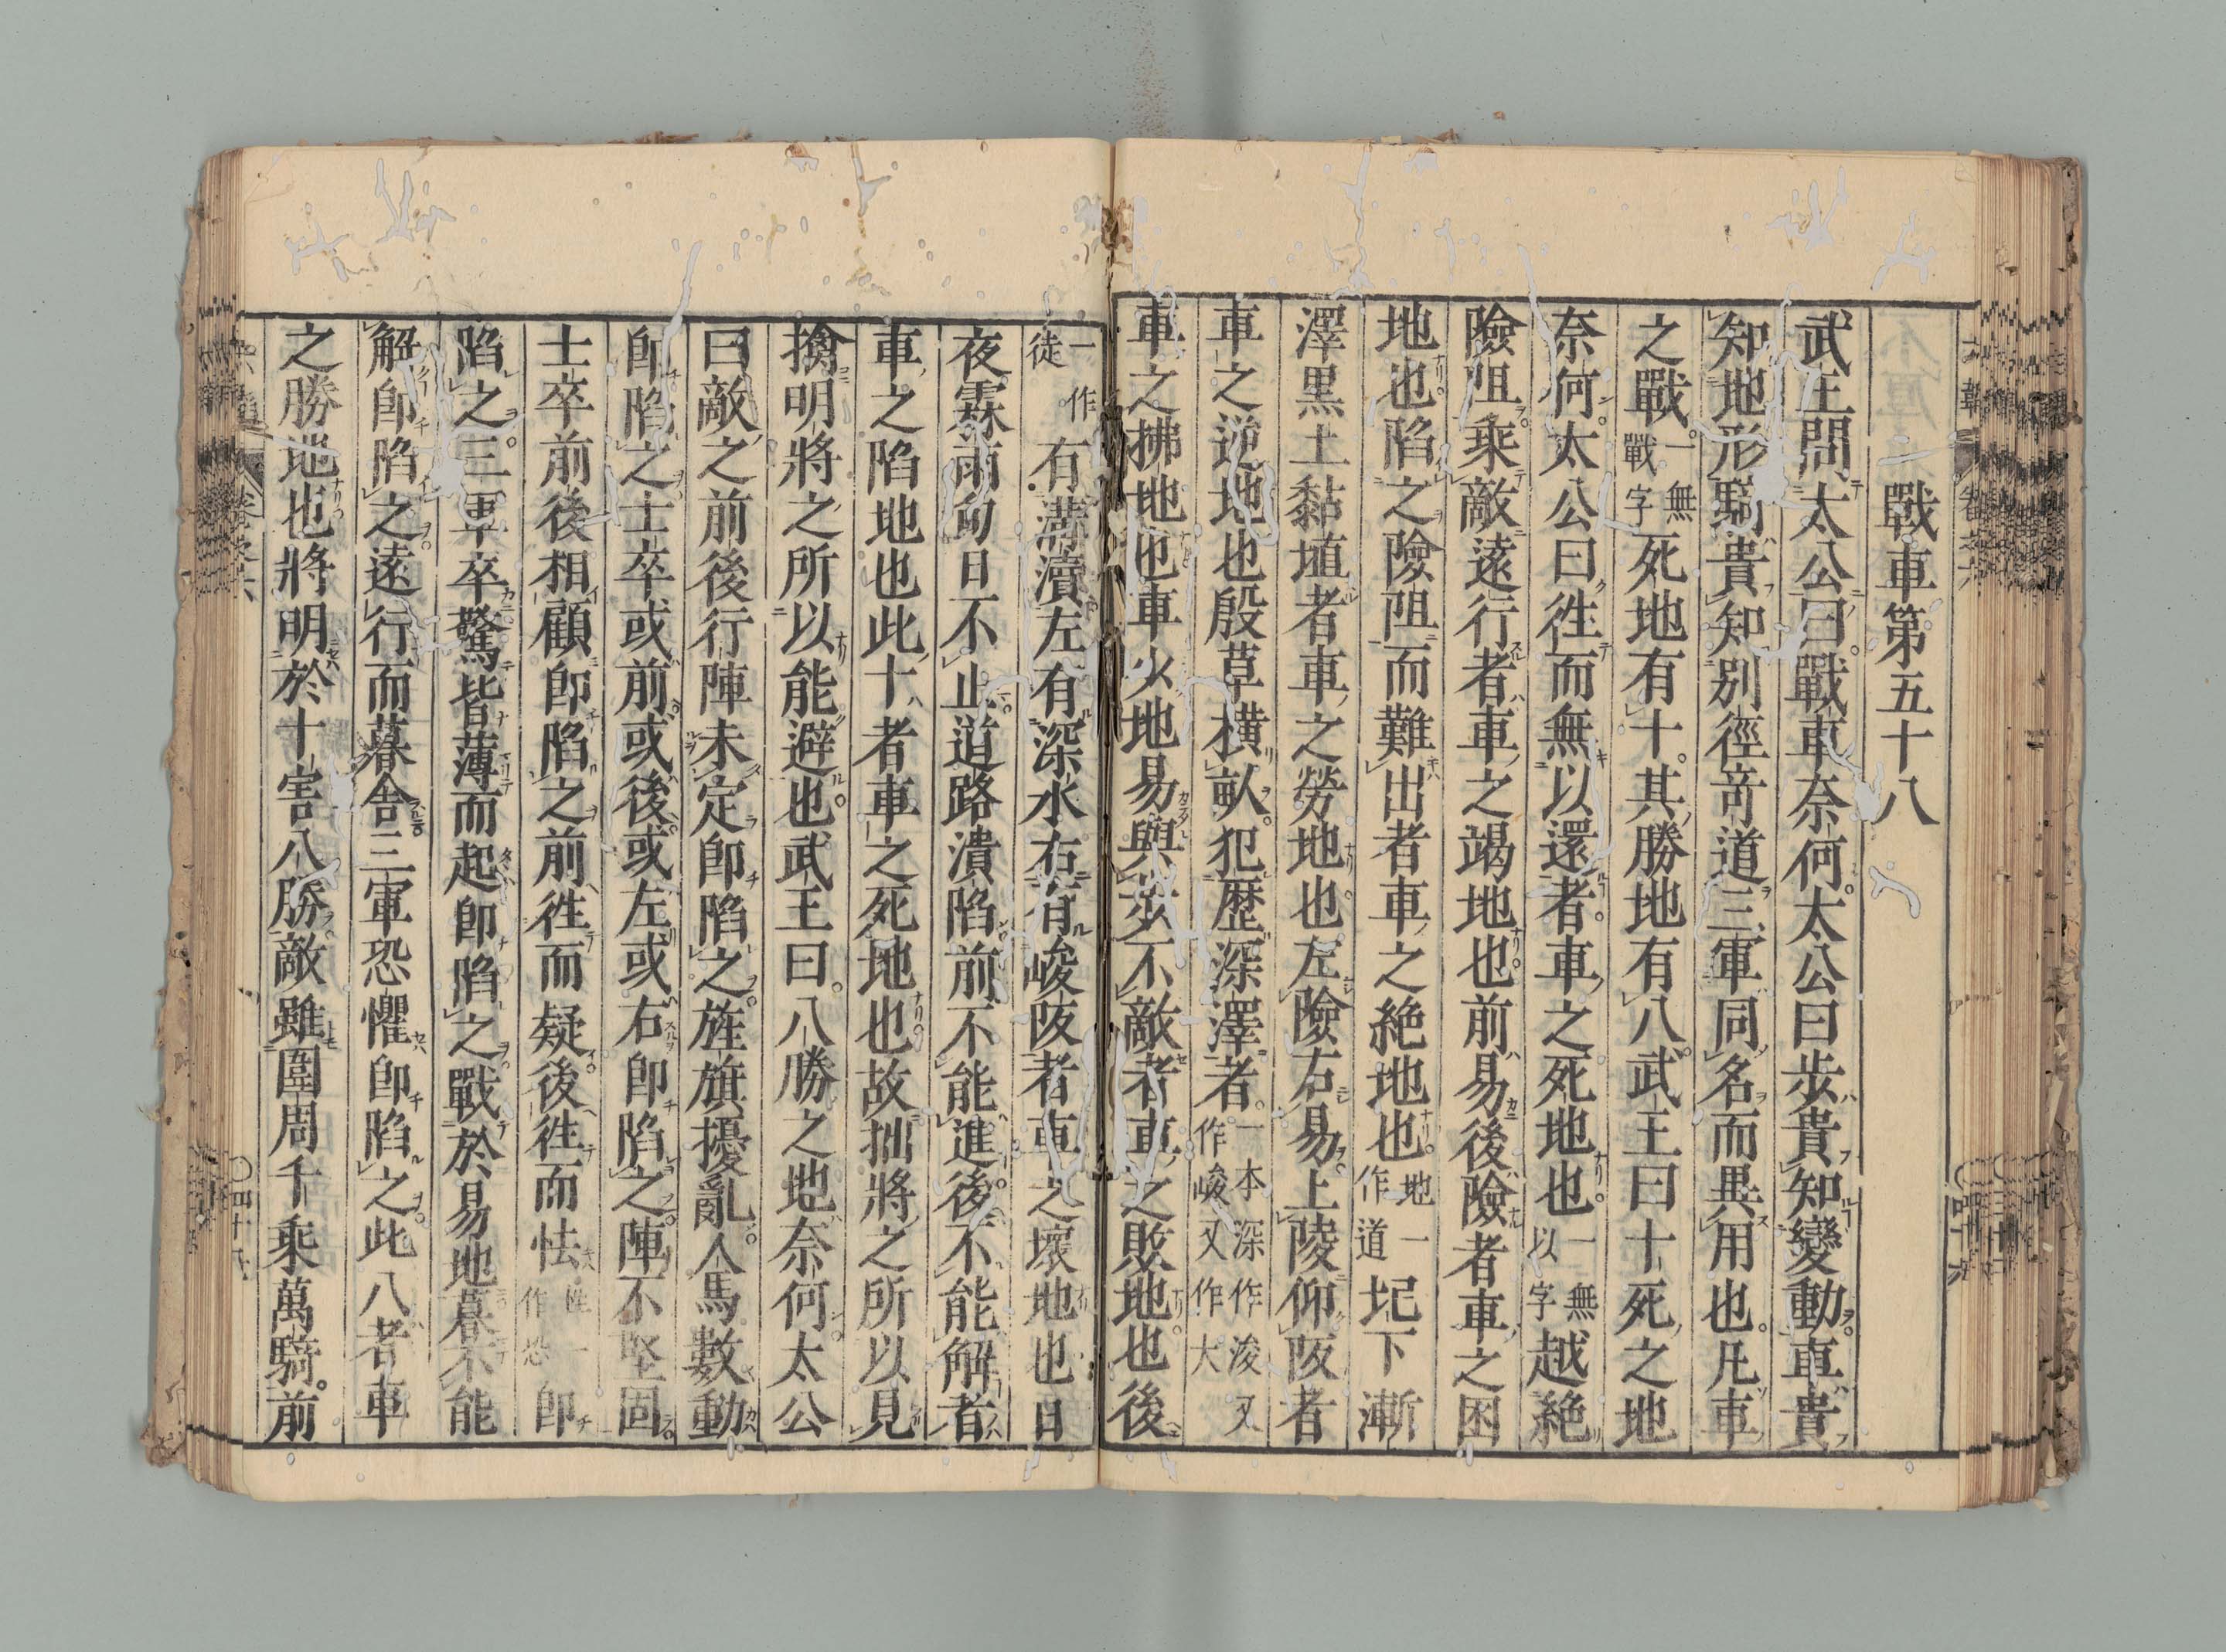 戰車第五十八
武王問太公曰戰車奈何太公曰步貴知變動車貴
知地形騎貴知別徑竒道三軍同名而異用也凡車
之戰一無戰字死地有十其勝地有八武王曰十死之地
奈何太公曰徃而無以還者車之死地也一無以字越絕
險阻乘敵遠行者車之竭地也前易後險者車之困
地也陷之險阻而難出者車之絕地也地一作道圮下漸
澤黑土黏埴者車之勞地也左險右易上陵仰阪者
車之逆地也殷草橫畝犯歷深澤者一本深作浚又作峻又作大
車之拂地也車少地易與步不敵者車之敗地也後
一作徒有溝瀆左有深水右有峻阪者車之壞地也日
夜霖雨旬日不止道路潰陷前不能進後不能解者
車之陷地也此十者車之死地也故拙將之所以見
擒明將之所以能避也武王曰八勝之地奈何太公
曰敵之前後行陣未定卽陷之旌旗擾亂人馬數動
卽陷之士卒或前或後或左或右卽陷之陣不堅固
士卒前後相顧卽陷之前徃而疑後徃而怯怯一作恐卽
陷之三軍卒驚皆薄而起卽陷之戰於易地暮不能
解卽陷之遠行而暮舎三軍恐懼卽陷之此八者車
之勝地也將明於十害八勝敵雖圍周千乘萬騎前